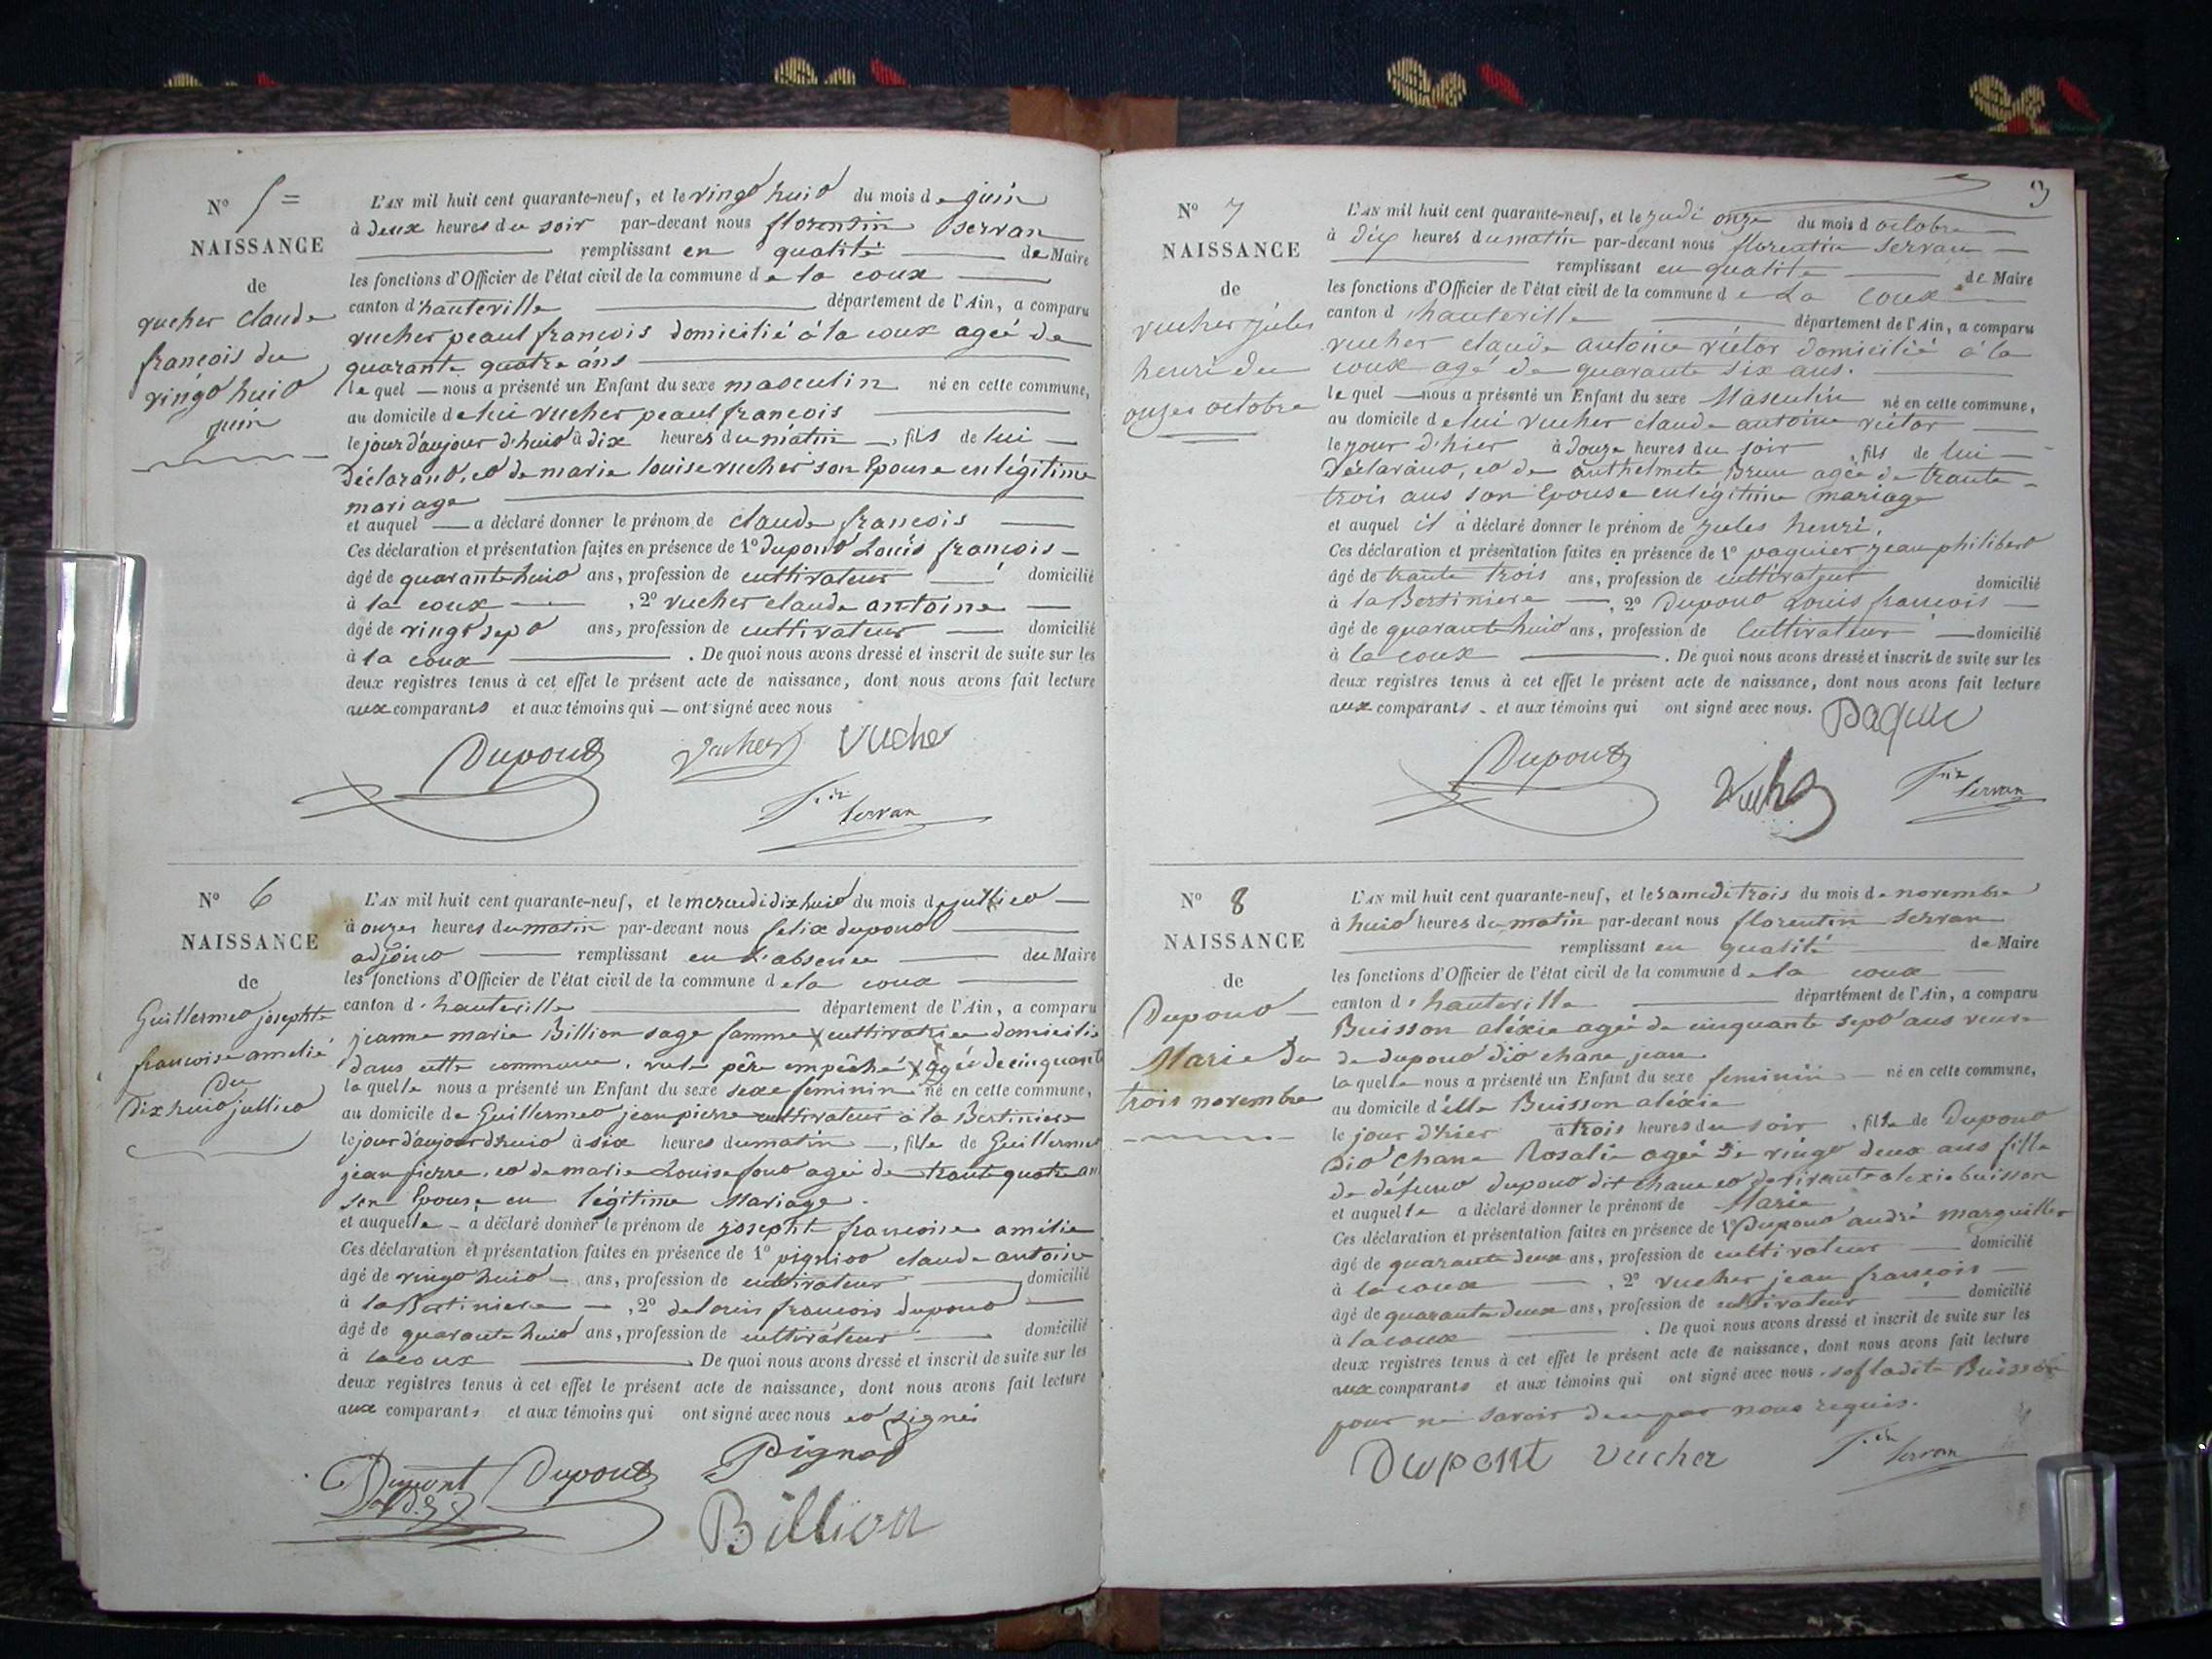 N° 5=
NAISSANCE
de
vucher claude
françois du
vingt huit
juin
L'AN mil huit cent quarante-neuf, et le vingt huit du mois de juin
à deux heures du soir par-devant nous florentin servan
remplissant en qualité de Maire
les fonctions d'Officier de l'état civil de la commune de la coux
canton d'hauteville département de l'Ain, a comparu
vucher peaul françois domicilié à la coux ageé de
quarante quatre ans
le quel nous a présenté un Enfant du sexe masculin né en cette commune,
au domicile de lui vucher peaul françois
le jour d'aujour d'huit à dix heures du matin, fils de lui
Déclarant, et de marie louise vucher son Epouse en légitime
mariage
et auquel a déclaré donner le prénom de claude françois
Ces déclaration et présentation faites en présence de 1° dupont Louis françois
âgé de quarante huit ans, profession de cultivateur domicilié
à la coux, 2° vucher claude antoine
âgé de vingt sept ans, profession de cultivateur domicilié
à la coux. De quoi nous avons dressé et inscrit de suite sur les
deux registres tenus à cet effet le présent acte de naissance, dont nous avons fait lecture
aux comparants et aux témoins qui ont signé avec nous
Dupont Vucher Vucher
Servan
N° 6
NAISSANCE
de
Guillermet josephte
francoise amelie
du
dix huit jullied
L'AN mil huit cent quarante-neuf, et le mercredi dix huit du mois de jullied
à onzes heures du matin par-devant nous felix dupont
adjoint remplissant en l'absence du Maire
les fonctions d'Officier de l'état civil de la commune de la coux
canton d'hauteville département de l'Ain, a comparu
jeanne marie Billion sage famme cultivatrice domicilié
dans cette commune, vu le père empêché ageé de cinquante
la quelle nous a présenté un Enfant du sexe sexe feminin né en cette commune,
au domicile de Guillermet jean pierre cultivateur à la Bertiniere
le jour d'aujourd'huit à six heures du matin, fille de Guillermet
jean pierre, et de marie Louise font ageé de trante quatre an
son Epouse en légitime Mariage.
et auquelle a déclaré donner le prénom de josephte francoise amélie
Ces déclaration et présentation faites en présence de 1° pigniot claude antoine
âgé de vingt huit ans, profession de cultivateur domicilié
à la Bertiniere, 2° de louis francois dupont
âgé de quarante huit ans, profession de cultivateur domicilié
à lacoux De quoi nous avons dressé et inscrit de suite sur les
deux registres tenus à cet effet le présent acte de naissance, dont nous avons fait lecture
aux comparants et aux témoins qui ont signé avec nous et signés
Dumont Dupont Pignod
Billion
3
N° 7
NAISSANCE
de
vucher jules
henri du
onzes octobre
L'AN mil huit cent quarante-neuf, et le judi onze du mois d octobre
à dix heures du matin par-devant nous florentin servan
remplissant en qualité de Maire
les fonctions d'Officier de l'état civil de la commune de La coux
canton d hauteville département de l'Ain, a comparu
vucher claude antoine victor domicilié à la
coux agé de quarante six ans.
le quel nous a présenté un Enfant du sexe Masculin né en cette commune,
au domicile de lui vucher claude antoine victor
le jour d'hier à douze heures du soir, fils de lui
Déclarant, et de anthelmete Brun agée de trante
trois ans son Epouse en légitime mariage
et auquel il a déclaré donner le prénom de jules henri.
Ces déclaration et présentation faites en présence de 1° paquier jean philibert
âgé de trante trois ans, profession de cultivateur domicilié
à la Bertiniere, 2° Dupont Louis francois
âgé de quarante huit ans, profession de Cultivateur domicilié
à la coux. De quoi nous avons dressé et inscrit de suite sur les
deux registres tenus à cet effet le présent acte de naissance, dont nous avons fait lecture
aux comparants et aux témoins qui ont signé avec nous. Paquie
Dupont Vucher Servan
N° 8
NAISSANCE
de
Dupont
Marie du
trois novembre
L'AN mil huit cent quarante-neuf, et le samedi trois du mois de novembre
à huit heures du matin par-devant nous florentin servan
remplissant en qualité de Maire
les fonctions d'Officier de l'état civil de la commune de la coux
canton d'hauteville département de l'Ain, a comparu
Buisson aléxie ageé de cinquante sept ans veuve
de dupont dit chane jean
la quelle nous a présenté un Enfant du sexe feminin né en cette commune,
au domicile d'elle Buisson aléxie
le jour d'hier à trois heures du soir, fille de Dupont
dit chane Rosalie ageé de vingt deux ans fille
de défunt dupont dit chane et de vivante alexie buisson
et auquelle a déclaré donner le prénom de Marie
Ces déclaration et présentation faites en présence de 1° Dupont andré marguillier
âgé de quarante deux ans, profession de cultivateur domicilié
à la coux, 2° vucher jean francois
âgé de quarante deux ans, profession de cultivateur domicilié
à la coux. De quoi nous avons dressé et inscrit de suite sur les
deux registres tenus à cet effet le présent acte de naissance, dont nous avons fait lecture
aux comparants et aux témoins qui ont signé avec nous. sof ladite Buisson
pour ne savoir de ce par nous requis.
Dupont Vucher Servan